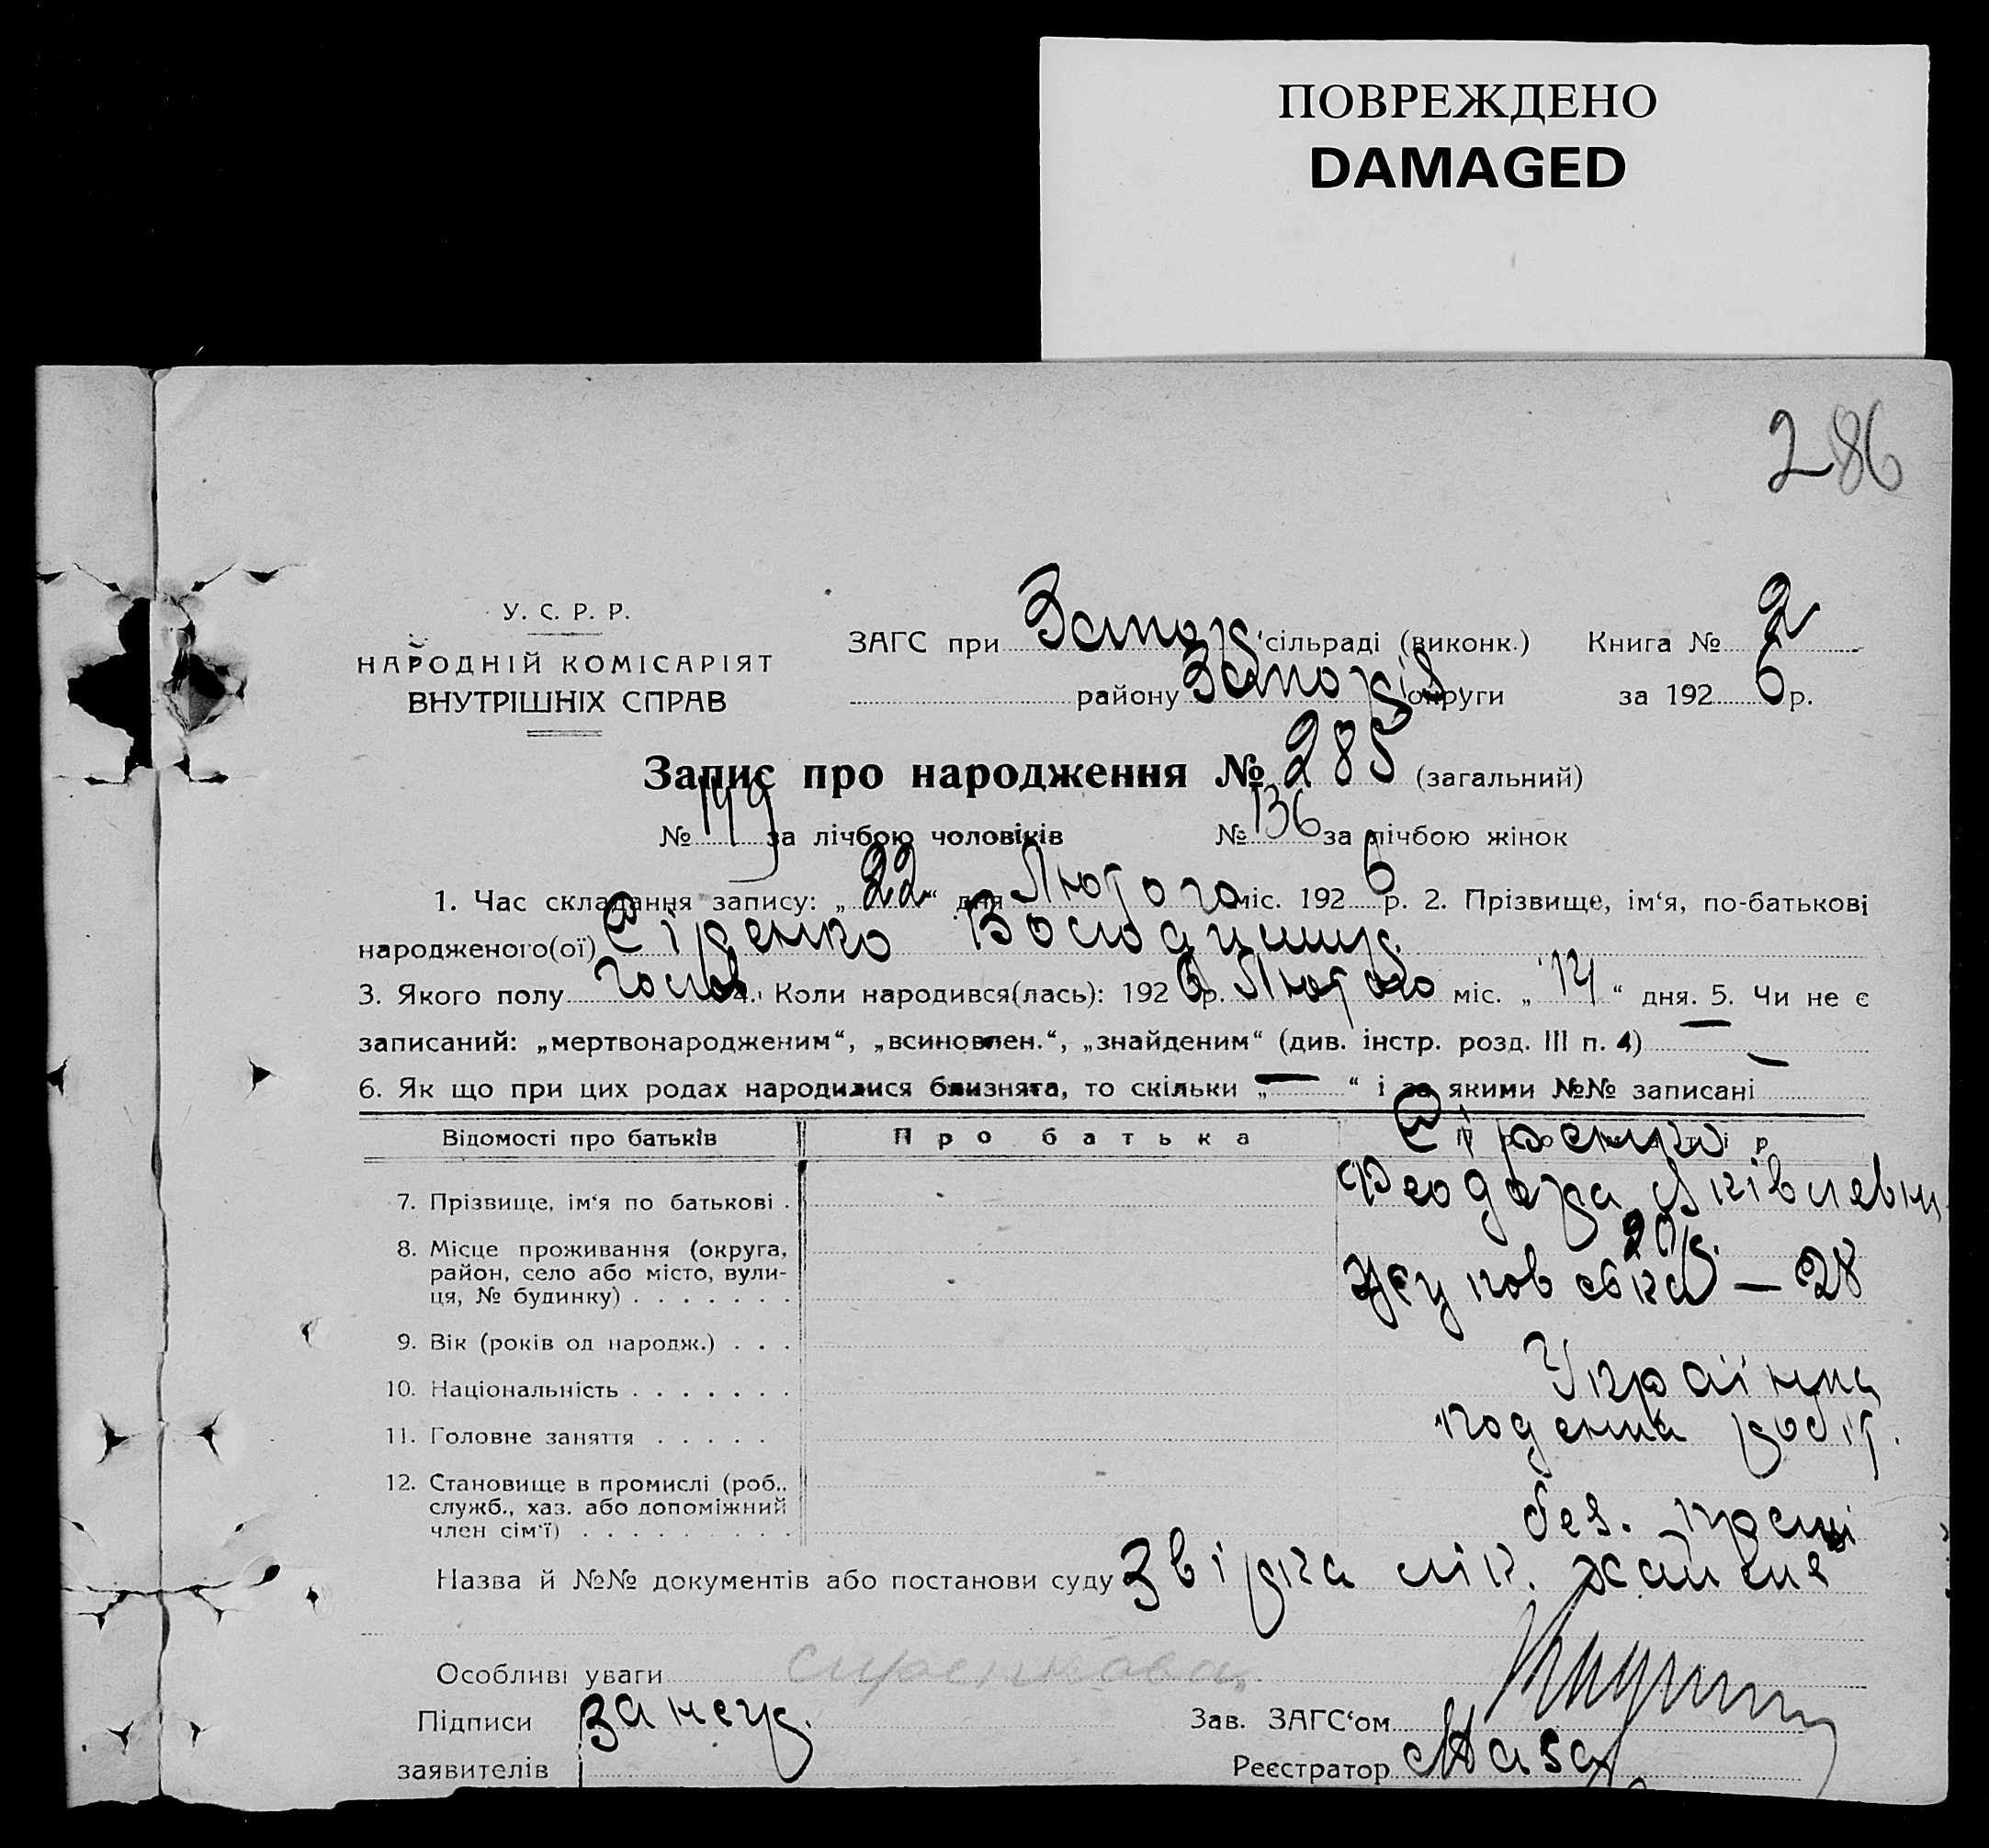 ПОВРЕЖДЕНО
DAMAGED
286
У. С. Р. Р.
НАРОДНІЙ КОМІСАРІЯТ
ВНУТРІШНІХ СПРАВ
ЗАГС при Запор. сільраді (виконк.) Книга № 2
району Запоріз округи за 1926 р.
Запис про народження № 285 (загальний)
№ 149 за лічбою чоловіків № 136 за лічбою жінок
1. Час складання запису: „22“ дня Лютого міс. 1926 р. 2. Прізвище, ім‘я, по-батькові
народженого(ої) Сіренко Володимир.
3. Якого полу чолов 4. Коли народився(лась): 1926 р. Лютого міс. „14“ дня. 5. Чи не є
записаний: „мертвонародженим“, „всиновлен.“, „знайденим“ (див. інстр. розд. III п. 4) —
6. Як що при цих родах народилися близнята, то скільки „—“ і за якими №№ записані —
Відомості про батьків Про батька Про матір
7. Прізвище, ім‘я по батькові . Сіренко Феодора Яківлевна
8. Місце проживання (округа,
район, село або місто, вули-
ця, № будинку) . . . . . . . — 28
9. Вік (років од народж.) . . . 20 р.
10. Національність . . . . . . . Українка
11. Головне заняття . . . . . поденна робіт.
12. Становище в промислі (роб.,
служб., хаз. або допоміжний
член сім‘ї) . . . . . . . . . без. праці
Назва й №№ документів або постанови суду
Особливі уваги сиренкова
Підписи Зав. ЗАГС‘ом
заявителів Реєстратор